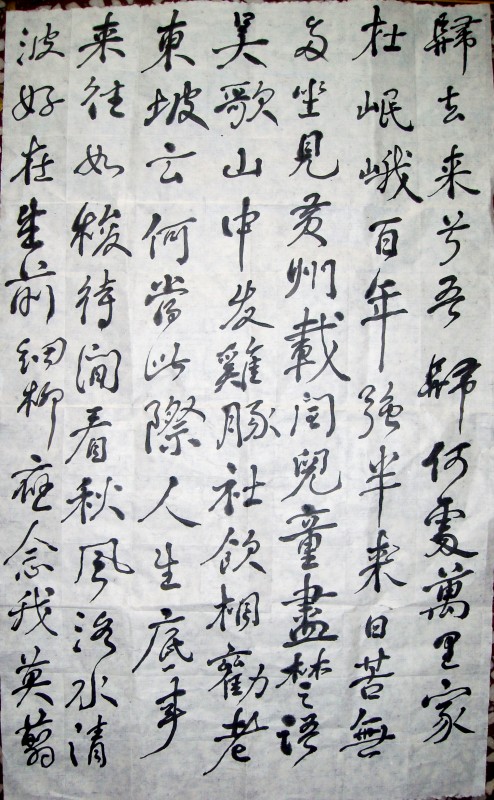 歸去来兮吾歸何處萬里家
在岷峨百年強半来日苦無
多坐見黄州載閏兒童盡楚語
吴歌山中友雞豚社飲相勸老
東坡云何當此際人生底事
来往如梭待閒看秋風洛水清
波好在堂前細柳應念我莫翦